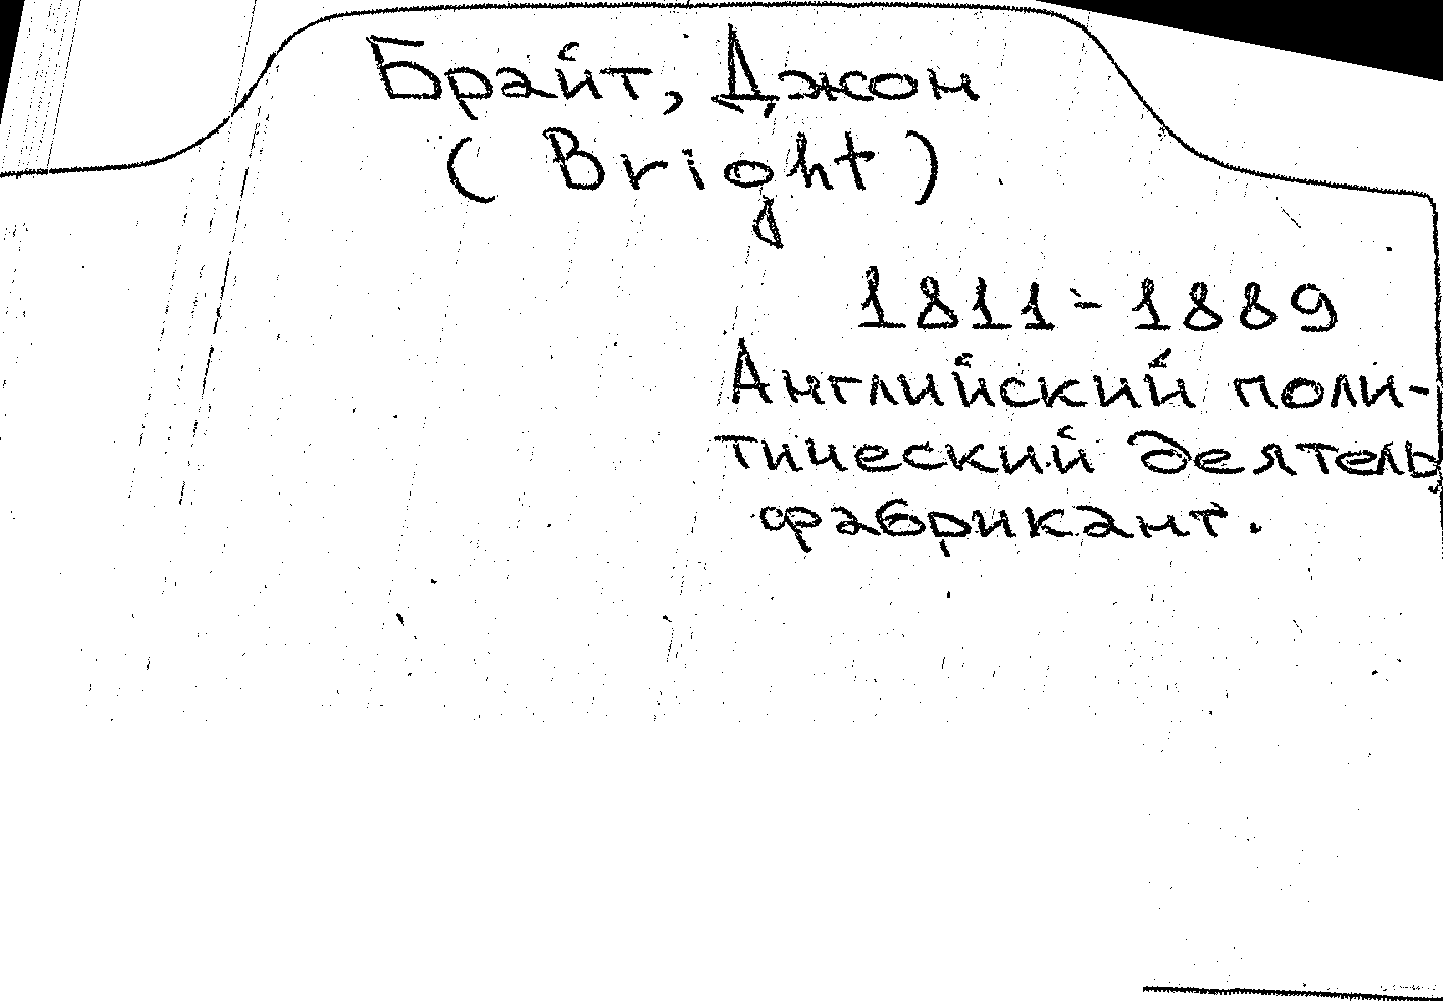 Брайт, Джон
(Bright)
1811-1889
Английский поли-
тический деятель,
фабрикант.